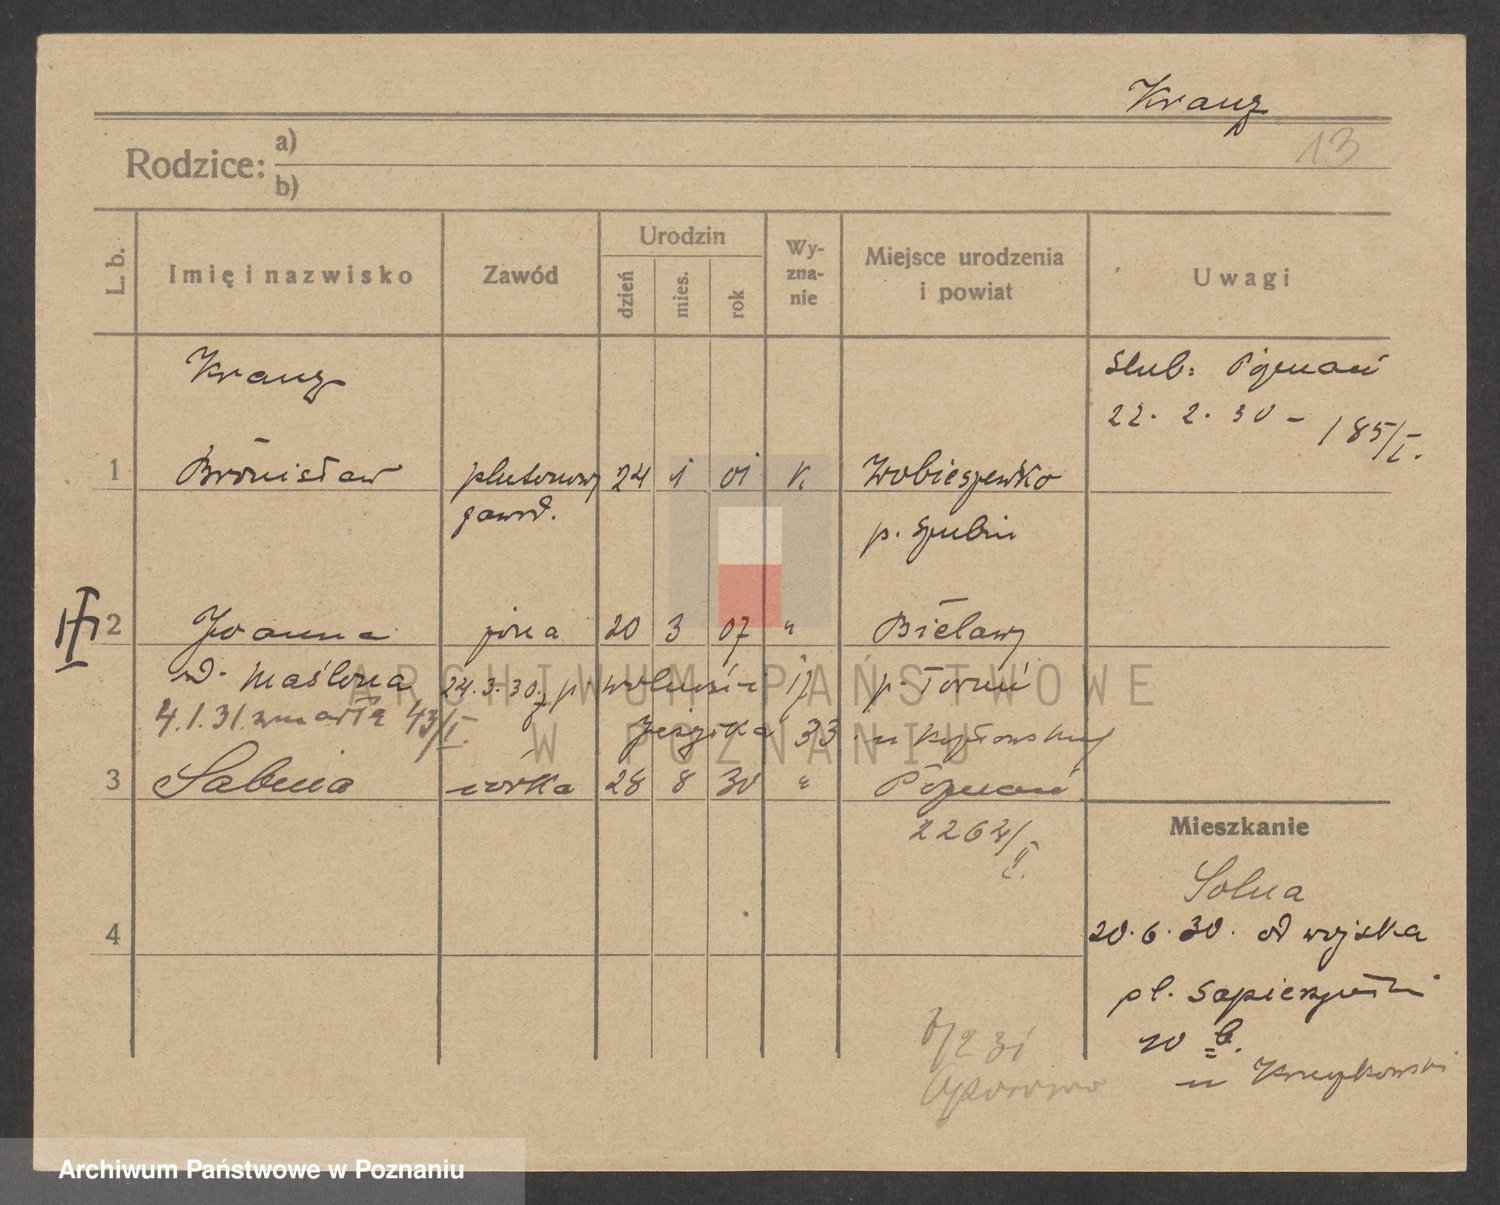 Kranz
13
Rodzice: a)
b)
L. b. Imię i nazwisko Zawód Urodzin dzień mies. rok Wy-zna-nie Miejsce urodzenia i powiat Uwagi
Kranz
Ślub: Poznań
22. 2. 30 – 185/I.
1 Bronisław plutonowy 24 1 01 k. Wobieszewko
zawod. p. Szubin
III 2 Joanna żona 20 3 07 " Bielawy
d. Maślona 24.3.30. p. Toruń
4.1.31. zmarła 43/I. 33
3 Sabina córka 28 8 30 " Poznań
2264/II.
4
Mieszkanie
Solna
20.6.30. od wojska
pl. Sapieżyński
10 b.
u
31
ARCHIWUM PAŃSTWOWE
W POZNANIU
Archiwum Państwowe w Poznaniu